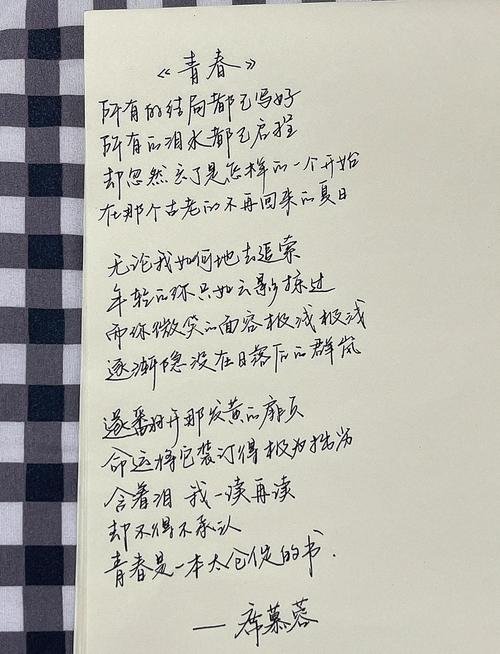 《青春》
所有的结局都已写好
所有的泪水都已启程
却忽然忘了是怎样的一个开始
在那个古老的不再回来的夏日
无论我如何地去追索
年轻的你只如云影掠过
而你微笑的面容极浅极浅
逐渐隐没在日落后的群岚
遂翻开那发黄的扉页
命运将它装订得极为拙劣
含着泪 我一读再读
却不得不承认
青春是一本太仓促的书.
—席慕蓉